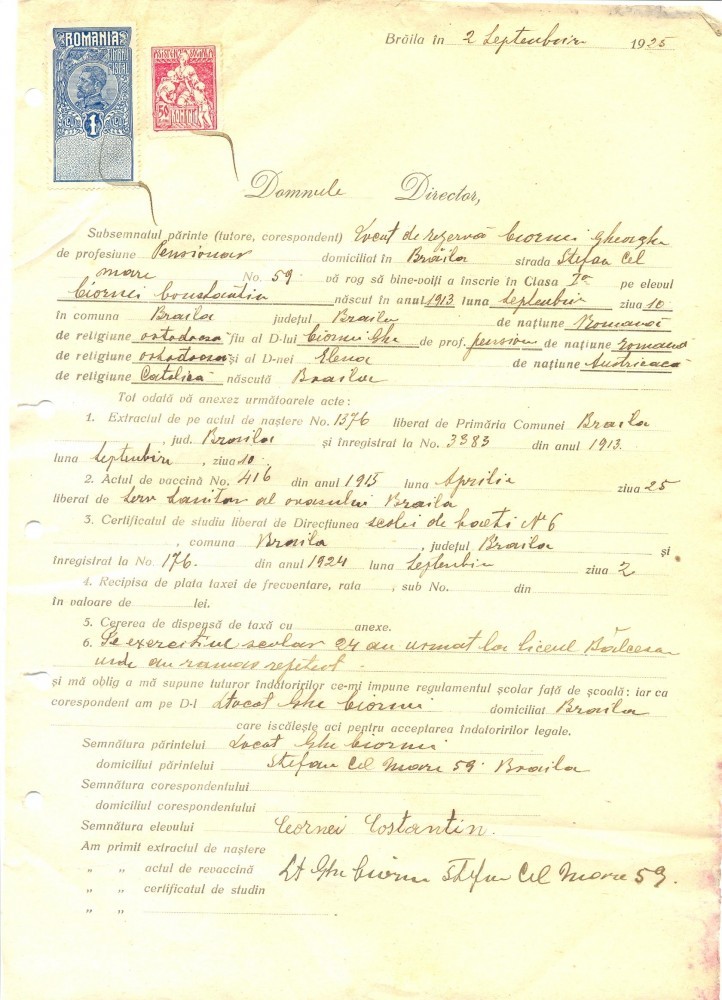 ROMANIA
TIMBRU FISCAL
1
ASISTENȚA SOCIALĂ
50
ROMANIA
Brăila în 2 Septembrie 1925
Domnule Director,
Subsemnatul părinte (tutore, corespondent) Locot de rezervă Ciornei Gheorghe
de profesiune Pensionar domiciliat în Brăila strada Ștefan Cel
mare No. 59 vă rog să bine-voiți a înscrie în Clasa Ia pe elevul
Ciornei Constantin născut în anul 1913 luna Septembrie ziua 10
în comuna Braila județul Braila de națiune Romană
de religiune ortodoxa fiu al D-lui Ciornei Ghe de prof. pension de națiune romană
de religiune ortodoxa și al D-nei Elena de națiune Austriacă
de religiune Catolică născută Braila
Tot odată vă anexez următoarele acte :
1. Extractul de pe actul de naștere No. 1376 liberat de Primăria Comunei Braila
, jud. Braila și înregistrat la No. 3383 din anul 1913.
luna Septembrie , ziua 10.
2. Actul de vaccină No. 416 din anul 1915 luna Aprilie ziua 25
liberat de Serv Sanitar al orasului Braila
3. Certificatul de studiu liberat de Direcțiunea scolei de baeti No 6
, comuna Braila , județul Braila și
înregistrat la No 176. din anul 1924 luna Septembrie ziua 2
4. Recipisa de plata taxei de frecventare, rata , sub No. din
în valoare de lei.
5. Cererea de dispensă de taxă cu anexe.
6. Pe exercitiul scolar 24 au urmat la liceul Bălcescu
unde au ramas repetent.
și mă oblig a mă supune tuturor îndatoririlor ce-mi impune regulamentul școlar față de școală: iar ca
corespondent am pe D-l Ltocot Ghe Ciornei domiciliat Braila
care iscălește aci pentru acceptarea îndatoririlor legale.
Semnătura părintelui Locot Ghe Ciornei
domiciliul părintelui Stefan Cel Mare 59. Braila
Semnătura corespondentului
domiciliul corespondentului
Semnătura elevului Ceornei Costantin.
Am primit extractul de naștere
„ „ actul de revaccină Lt Ghe Ciornei Stefan Cel Mare 59.
„ „ certificatul de studin
„ „